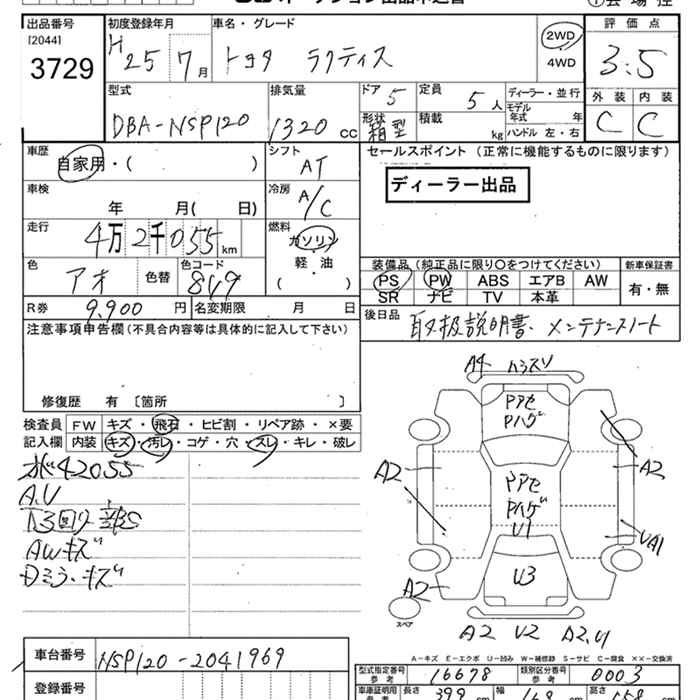 出品番号
[2044]
3729
初度登録年月
H25 7月
車名・グレード
トヨタ ラクティス
2WD
4WD
評価点
3.5
外装 内装
C C
型式
DBA-NSP120
排気量
1320 cc
ドア 5
形状 箱型
定員 5人
積載 kg
ディーラー・並行
モデル年式 年
ハンドル 左・右
車歴
自家用・( )
シフト
AT
セールスポイント (正常に機能するものに限ります)
ディーラー出品
車検
年 月( 日)
冷房
A/C
走行
4万2千055km
燃料
ガソリン
軽・油
( )
色
アオ 色替
色コード
8V9
装備品(純正品に限り○をつけてください) 新車保証書
PS PW ABS エアB AW
SR ナビ TV 本革
有・無
R券 9,900円 名変期限 月 日
後日品 取扱説明書、メンテナンスノート
注意事項申告欄(不具合内容等は具体的に記入して下さい)
修復歴 有〔箇所 〕
検査員記入欄
FW キズ・飛石・ヒビ割・リペア跡・×要
内装 キズ・汚レ・コゲ・穴・スレ・キレ・破レ
42055
A.U
AWキズ
Dミラ・キズ
A4 ハラスリ
Pアセ
Pハゲ
A2
A2
Pアセ
Pハゲ
U1
UA1
U3
A2
スペア
A2 U2 A2,U1
A-キズ E-エクボ U-凹み W-補修跡 S-サビ C-腐食 ××-交換済
車台番号 NSP120-2041969
登録番号
型式指定番号 参考 16678
類別区分番号 参考 0003
車庫証明用 参考 長さ 399 幅 169 高さ 158